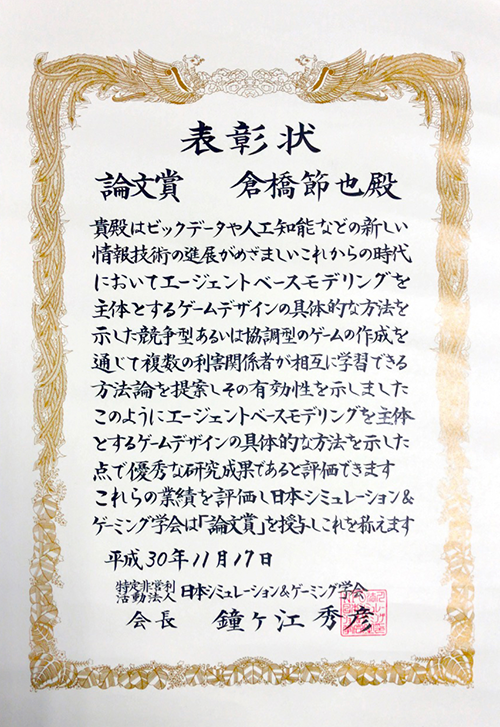 表彰状
論文賞　倉橋節也殿
貴殿はビックデータや人工知能などの新しい
情報技術の進展がめざましいこれからの時代
においてエージェントベースモデリングを
主体とするゲームデザインの具体的な方法を
示した競争型あるいは協調型のゲームの作成を
通じて複数の利害関係者が相互に学習できる
方法論を提案しその有効性を示しました
このようにエージェントベースモデリングを主体
とするゲームデザインの具体的な方法を示した
点で優秀な研究成果であると評価できます
これらの業績を評価し日本シミュレーション&
ゲーミング学会は「論文賞」を授与しこれを称えます
平成30年11月17日
特定非営利
活動法人 日本シミュレーション&ゲーミング学会
会長　鐘ヶ江秀彦